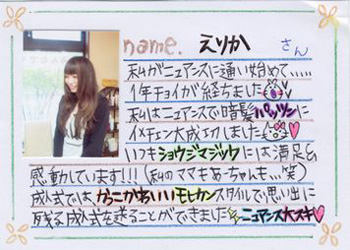 name. えりか さん
私がニュアンスに通い始めて.....
1年チョイが経ちました
私はニュアンスで暗髪パッツンに
イメチェン大成功しました
いつもショウジマジックには満足&
感動しています!!!(私のママもあーちゃんも...笑)
成人式では、かっこかわいいモヒカンスタイルで思い出に
残る成人式を送ることができました ニュアンス大スキ♥